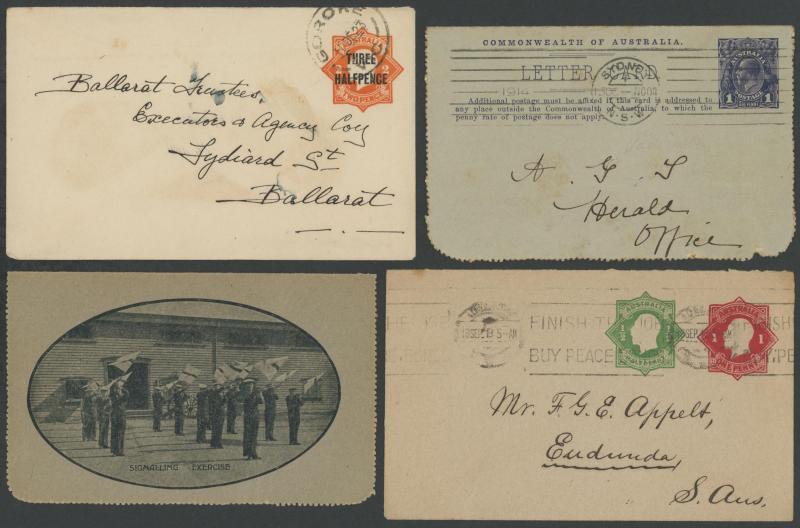 GOROKE
AUSTRALIA
THREE
HALFPENCE
TWO PENCE
Ballarat Trustees,
Executors & Agency Coy
Lydiard St.
Ballarat
COMMONWEALTH OF AUSTRALIA.
LETTER CARD
SYDNEY
N.S.W.
AUSTRALIA
1 1
POSTAGE
Additional postage must be affixed if this card is addressed to
any place outside the Commonwealth of Australia, to which the
penny rate of postage does not apply.
A. G. S
Herald
Office
SIGNALLING EXERCISE
18 SEP 5-AM
FINISH THE JOB
BUY PEACE
AUSTRALIA
HALFPENNY
AUSTRALIA
1 1
ONE PENNY
Mr. F. G. E. Appelt,
Eudunda,
S. Aus.